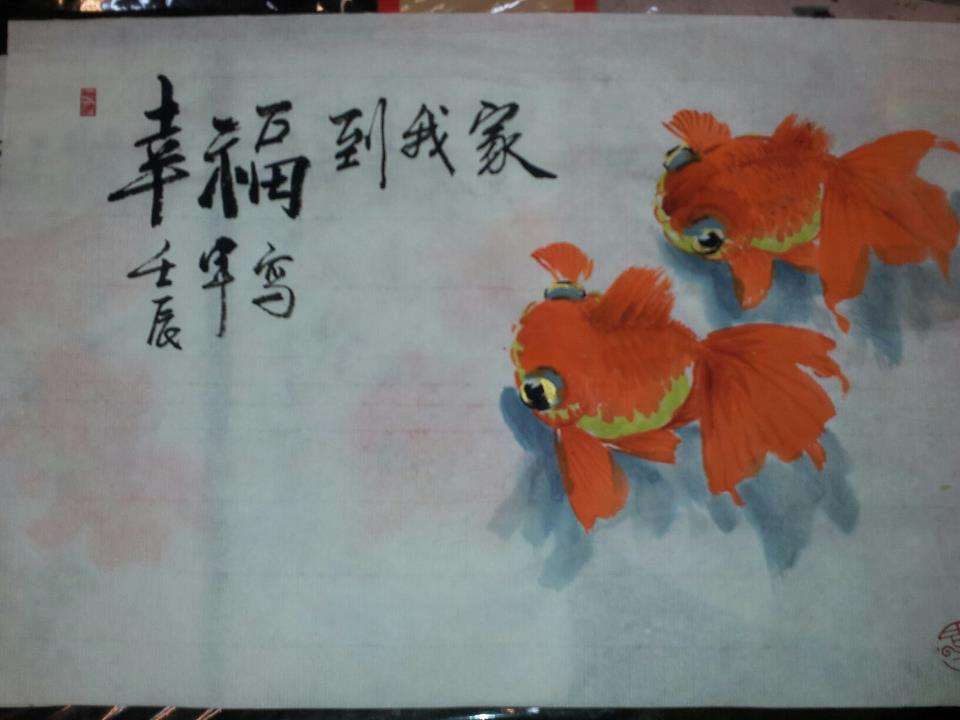 幸福到我家
壬辰年写